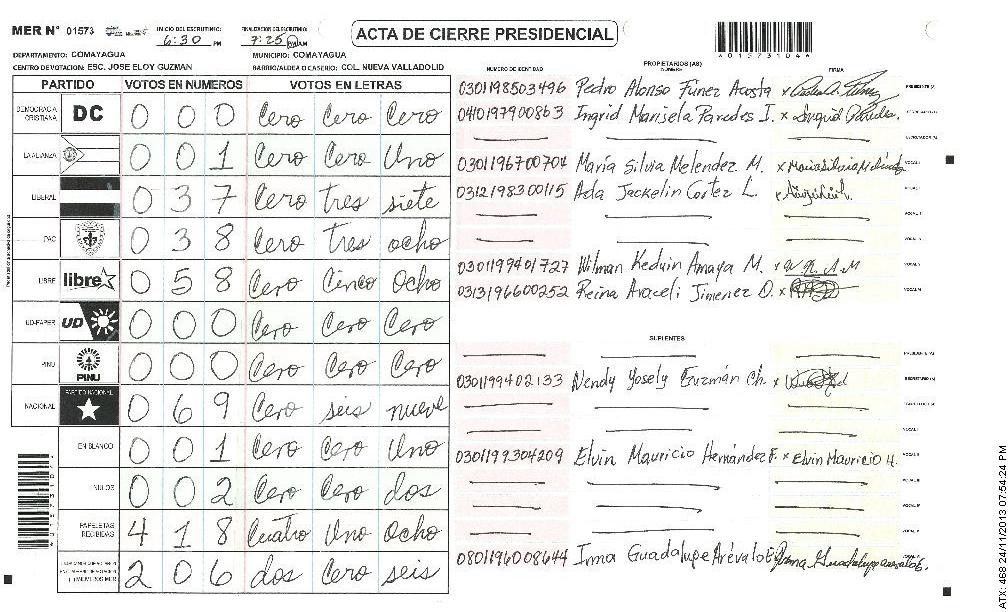 MER N° 01573 INICIO DEL ESCRUTINIO: 6:30 PM FINALIZACION DEL ESCRUTINIO: 7:25 PM AM
ACTA DE CIERRE PRESIDENCIAL
*015731044*
DEPARTAMENTO: COMAYAGUA MUNICIPIO: COMAYAGUA
CENTRO DE VOTACION: ESC. JOSE ELOY GUZMAN BARRIO/ALDEA O CASERIO: COL. NUEVA VALLADOLID
PARTIDO VOTOS EN NUMEROS VOTOS EN LETRAS
DEMOCRACIA CRISTIANA DC 0 0 0 Cero Cero Cero
LA ALIANZA 0 0 1 Cero Cero Uno
LIBERAL 0 3 7 Cero tres siete
PAC 0 3 8 Cero tres ocho
LIBRE libre 0 5 8 Cero Cinco Ocho
UD-FAPER UD 0 0 0 Cero Cero Cero
PINU PINU 0 0 0 Cero Cero Cero
NACIONAL PARTIDO NACIONAL 0 6 9 Cero seis nueve
EN BLANCO 0 0 1 Cero Cero Uno
NULOS 0 0 2 Cero Cero dos
PAPELETAS RECIBIDAS 4 1 8 Cuatro Uno Ocho
2 0 6 dos Cero seis
NUMERO DE IDENTIDAD PROPIETARIOS (AS) NOMBRE FIRMA
0301198503496 Pedro Alonso Funez Acosta x PRESIDENTE (A)
0401197900863 Ingrid Marisela Paredes I. x Ingrid Paredes
0301196700704 María Silvia Melendez M. x Maria Silvia Melendez VOCAL I
0312198300115 Ada Jackelin Cortez L. x
0301199401727 Wilman Keduin Amaya M. x W.K.A.M
0313196600252 Reina Araceli Jimenez O. x
SUPLENTES
PRESIDENTE (A)
0301199402133 Wendy Yosely Guzmán Ch. x SECRETARIO (A)
0301199304209 Elvin Mauricio Hernández F. x Elvin Mauricio H.
0801196008644 Irma Guadalupe Arévalo E. Irma Guadalupe Arevalo E.
ATX: 468 24/11/2013 07:54:24 PM